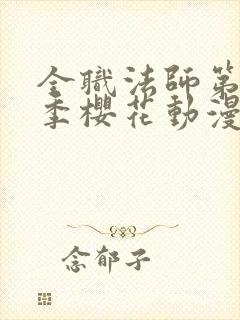 全職法師第
季櫻花動漫
念郁子